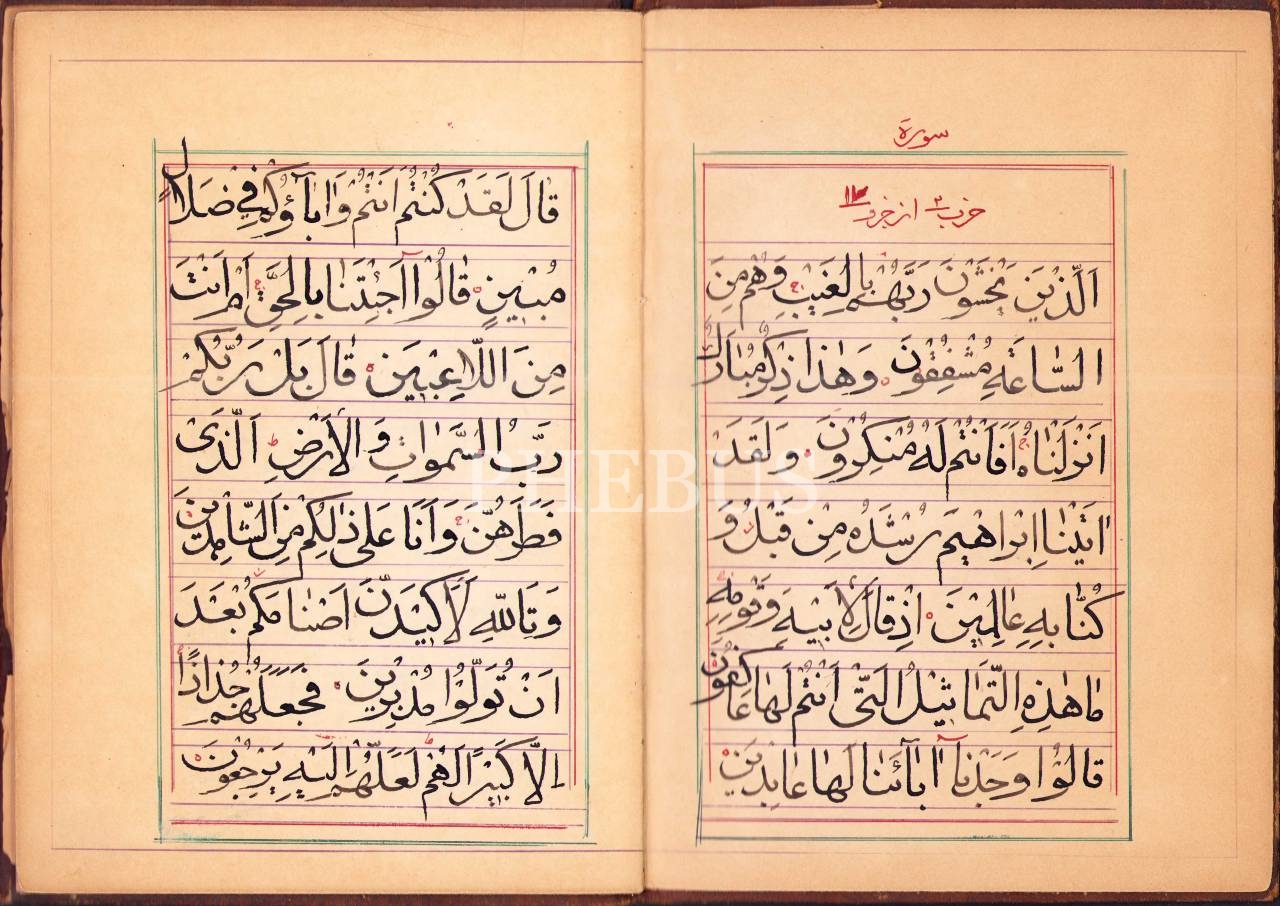 سورة
حزب ٣ از جزو ١٧
اَلَّذِيْنَ يَخْشَوْنَ رَبَّهُمْ بِالْغَيْبِ وَهُمْ مِنَ
السَّاعَةِ مُشْفِقُوْنَ وَهٰذَا ذِكْرٌ مُبٰارَكٌ
اَنْزَلْنٰاهُ اَفَاَنْتُمْ لَهُ مُنْكِرُوْنَ وَلَقَدْ
اٰتَيْنٰا اِبْرٰاهِيْمَ رُشْدَهُ مِنْ قَبْلُ وَ
كُنّٰا بِهِ عٰالِمِيْنَ اِذْ قٰالَ لِاَبِيْهِ وَقَوْمِهِ
مٰا هٰذِهِ التَّمٰاثِيْلُ الَّتِىْ اَنْتُمْ لَهٰا عٰاكِفُوْنَ
قٰالُوْا وَجَدْنٰا اٰبٰاۤئَنٰا لَهٰا عٰابِدِيْنَ
قٰالَ لَقَدْ كُنْتُمْ اَنْتُمْ وَاٰبٰاۤؤُكُمْ فِيْ ضَلَالٍ
مُبِيْنٍ قٰالُوْا اَجِئْتَنٰا بِالْحَقِّ اَمْ اَنْتَ
مِنَ اللّٰاعِبِيْنَ قٰالَ بَلْ رَبُّكُمْ
رَبُّ السَّمٰوَاتِ وَالْاَرْضِ اَلَّذِىْ
فَطَرَهُنَّ وَاَنَا عَلٰى ذٰلِكُمْ مِنَ الشّٰاهِدِيْنَ
وَتَاللّٰهِ لَاَكِيْدَنَّ اَصْنٰامَكُمْ بَعْدَ
اَنْ تُوَلُّوْا مُدْبِرِيْنَ فَجَعَلَهُمْ جُذَاذًا
اِلَّا كَبِيْرًا لَهُمْ لَعَلَّهُمْ اِلَيْهِ يَرْجِعُوْنَ
PHEBUS